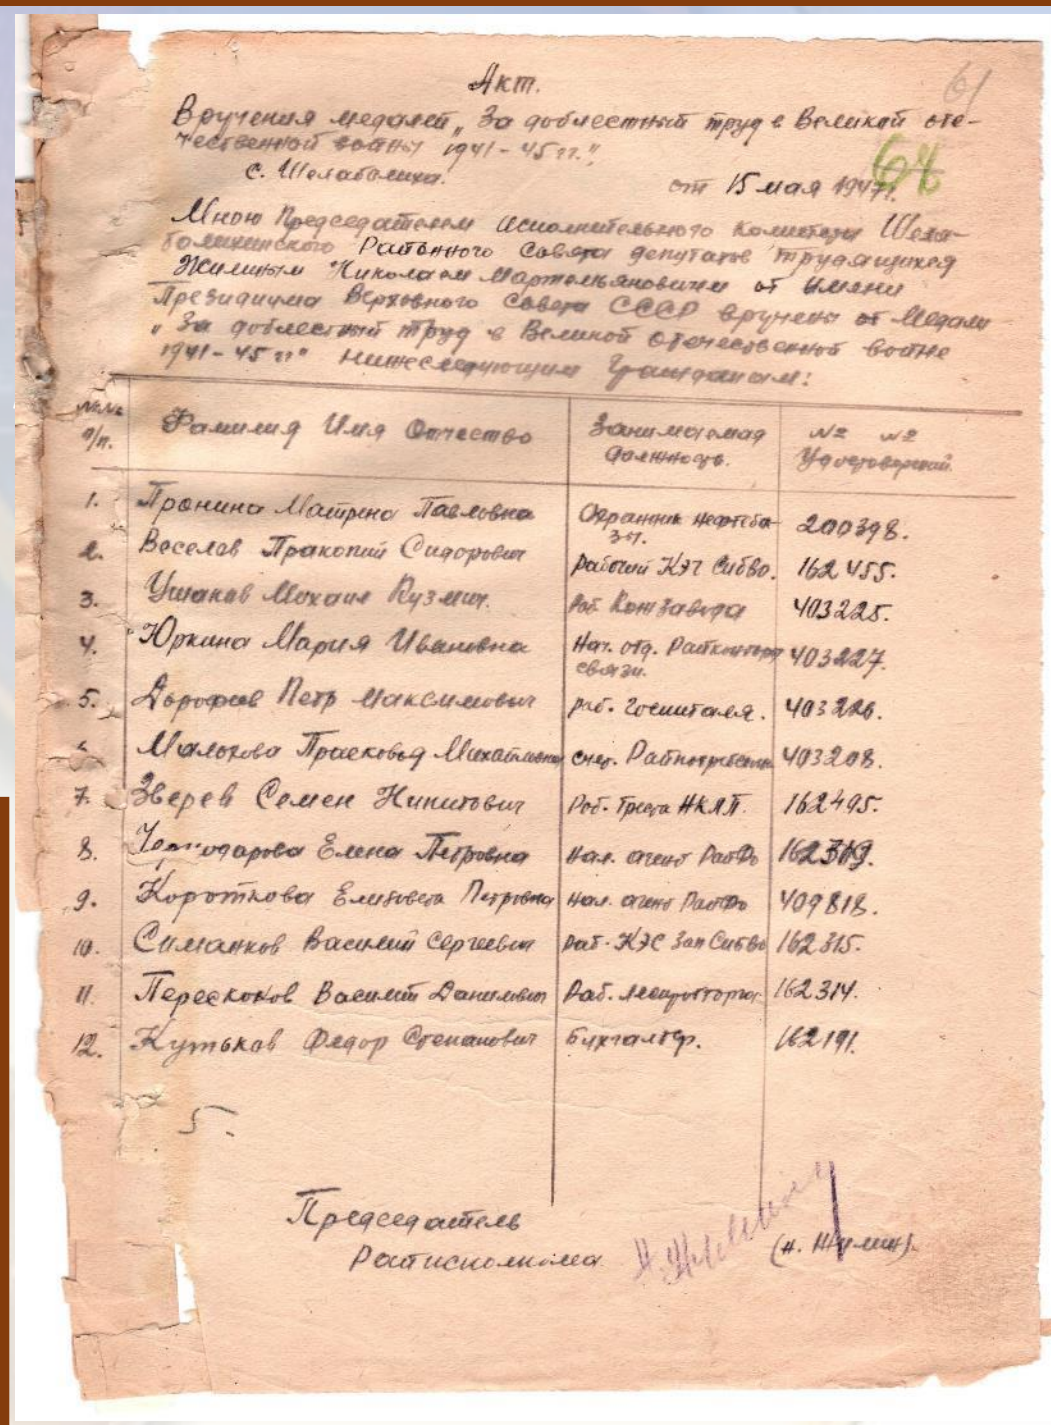 61
Акт.
Вручения медалей „За доблестный труд в Великой оте-
чественной войны 1941-45 гг."
68
с. Шелаболиха.
от 15 мая 1947г.
Мною Председателем исполнительного комитета Шела-
болихинского Районного Совета депутатов трудящихся
Жилиным Николаем Мартемьяновичем от имени
Президиума Верховного Совета СССР вручены от Медали
„За доблестный труд в Великой отечественной войне
1941-45 гг" нижеследующим Гражданам:
№№ п/п. Фамилия Имя Отчество Занимаемая должность. №№ Удостоверений.
1. Пронина Матрена Павловна Охранник нефтеба- зы. 200398.
2. Веселов Пракопий Сидорович рабочий КЭЧ Сибво. 162455.
3. Ушаков Михаил Кузмич. раб Конзавода 403225.
4. Юркина Мария Ивановна Нач. отд. Райконторы связи. 403227.
5. Дорофив Петр Максимович раб. госпиталя. 403226.
Малохова Прасковья Михайловна счет. 403208.
7. Зверев Семен Никитович Раб. Треста НКЛП. 162495.
8. Елена Петровна Нал. агент РайФо
9. Короткова Елизовета Петровна Нал. агент РайФо 409818.
10. Симанков Василий Сергеевич раб. КЭС Зап Сибво 162315.
11. Перескоков Василий Данилович Раб. 162314.
12. Кутьков Федор Степанович Бухгалтер. 162191.
5.
Председатель
Райисполкома Н. Жилин (Н. Жилин).